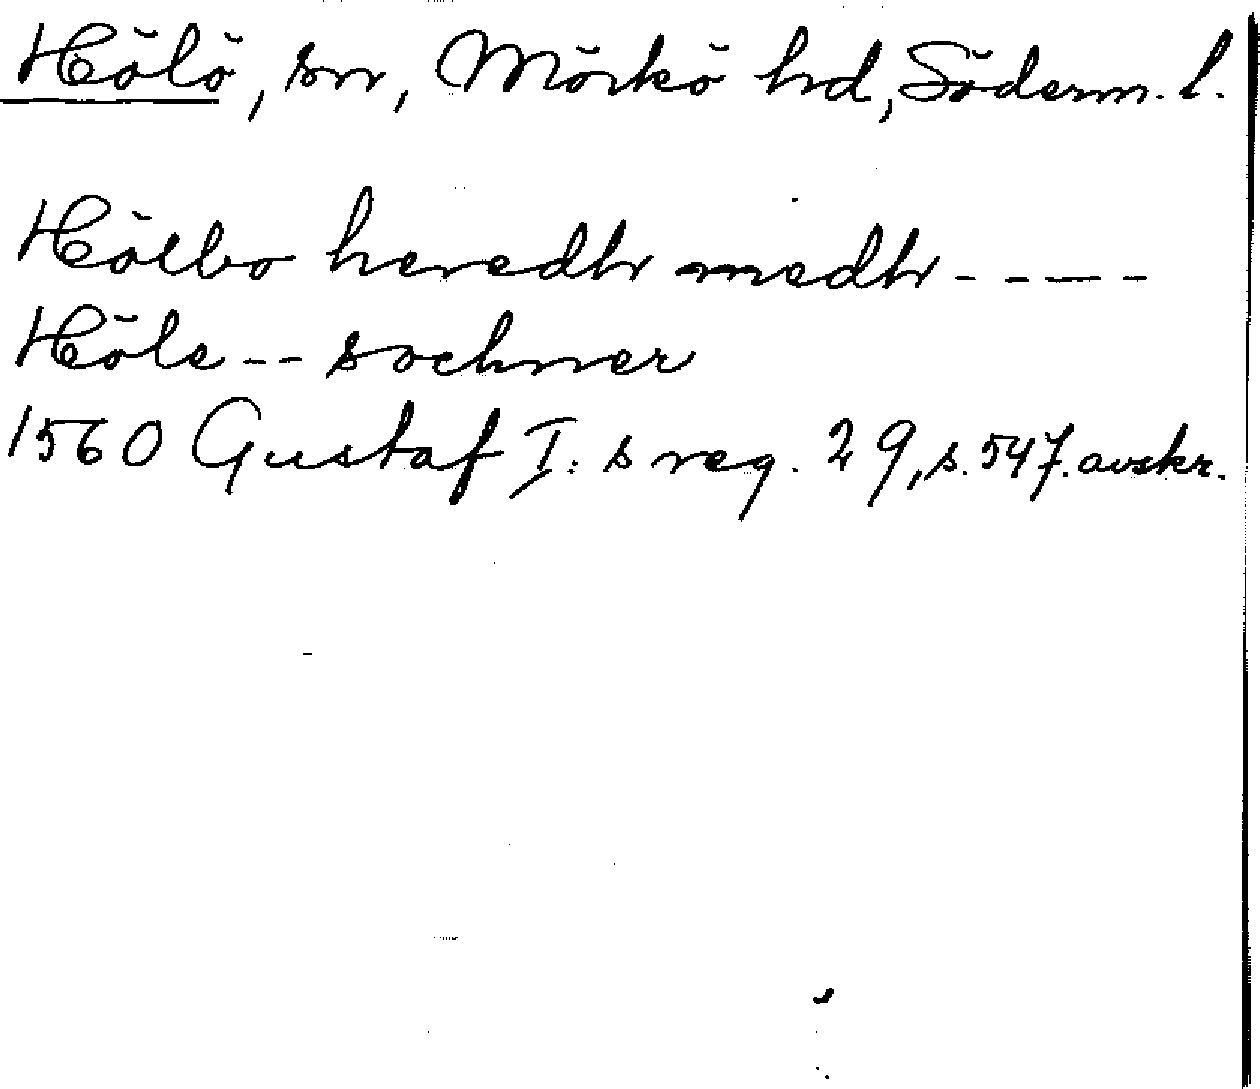 Hölö, sn, Mörkö hd, Söderm. l.
Hölbo heredh medh - - - -
Höle - - sochner
1560 Gustaf I: s reg. 29, s. 547. avskr.